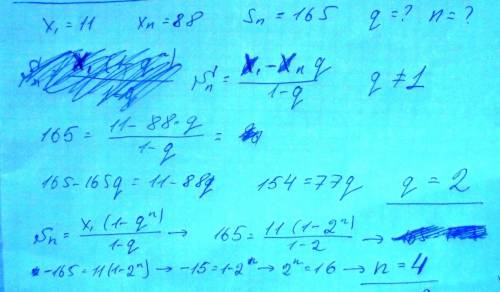 x₁ = 11 xₙ = 88 Sₙ = 165 q = ? n = ?
Sₙ = (x₁ - xₙ q) / (1 - q) q ≠ 1
165 = (11 - 88 · q) / (1 - q) =
165 - 165q = 11 - 88q 154 = 77q q = 2
Sₙ = x₁ (1 - qⁿ) / (1 - q) → 165 = 11 (1 - 2ⁿ) / (1 - 2) →
-165 = 11 (1 - 2ⁿ) → -15 = 1 - 2ⁿ → 2ⁿ = 16 → n = 4